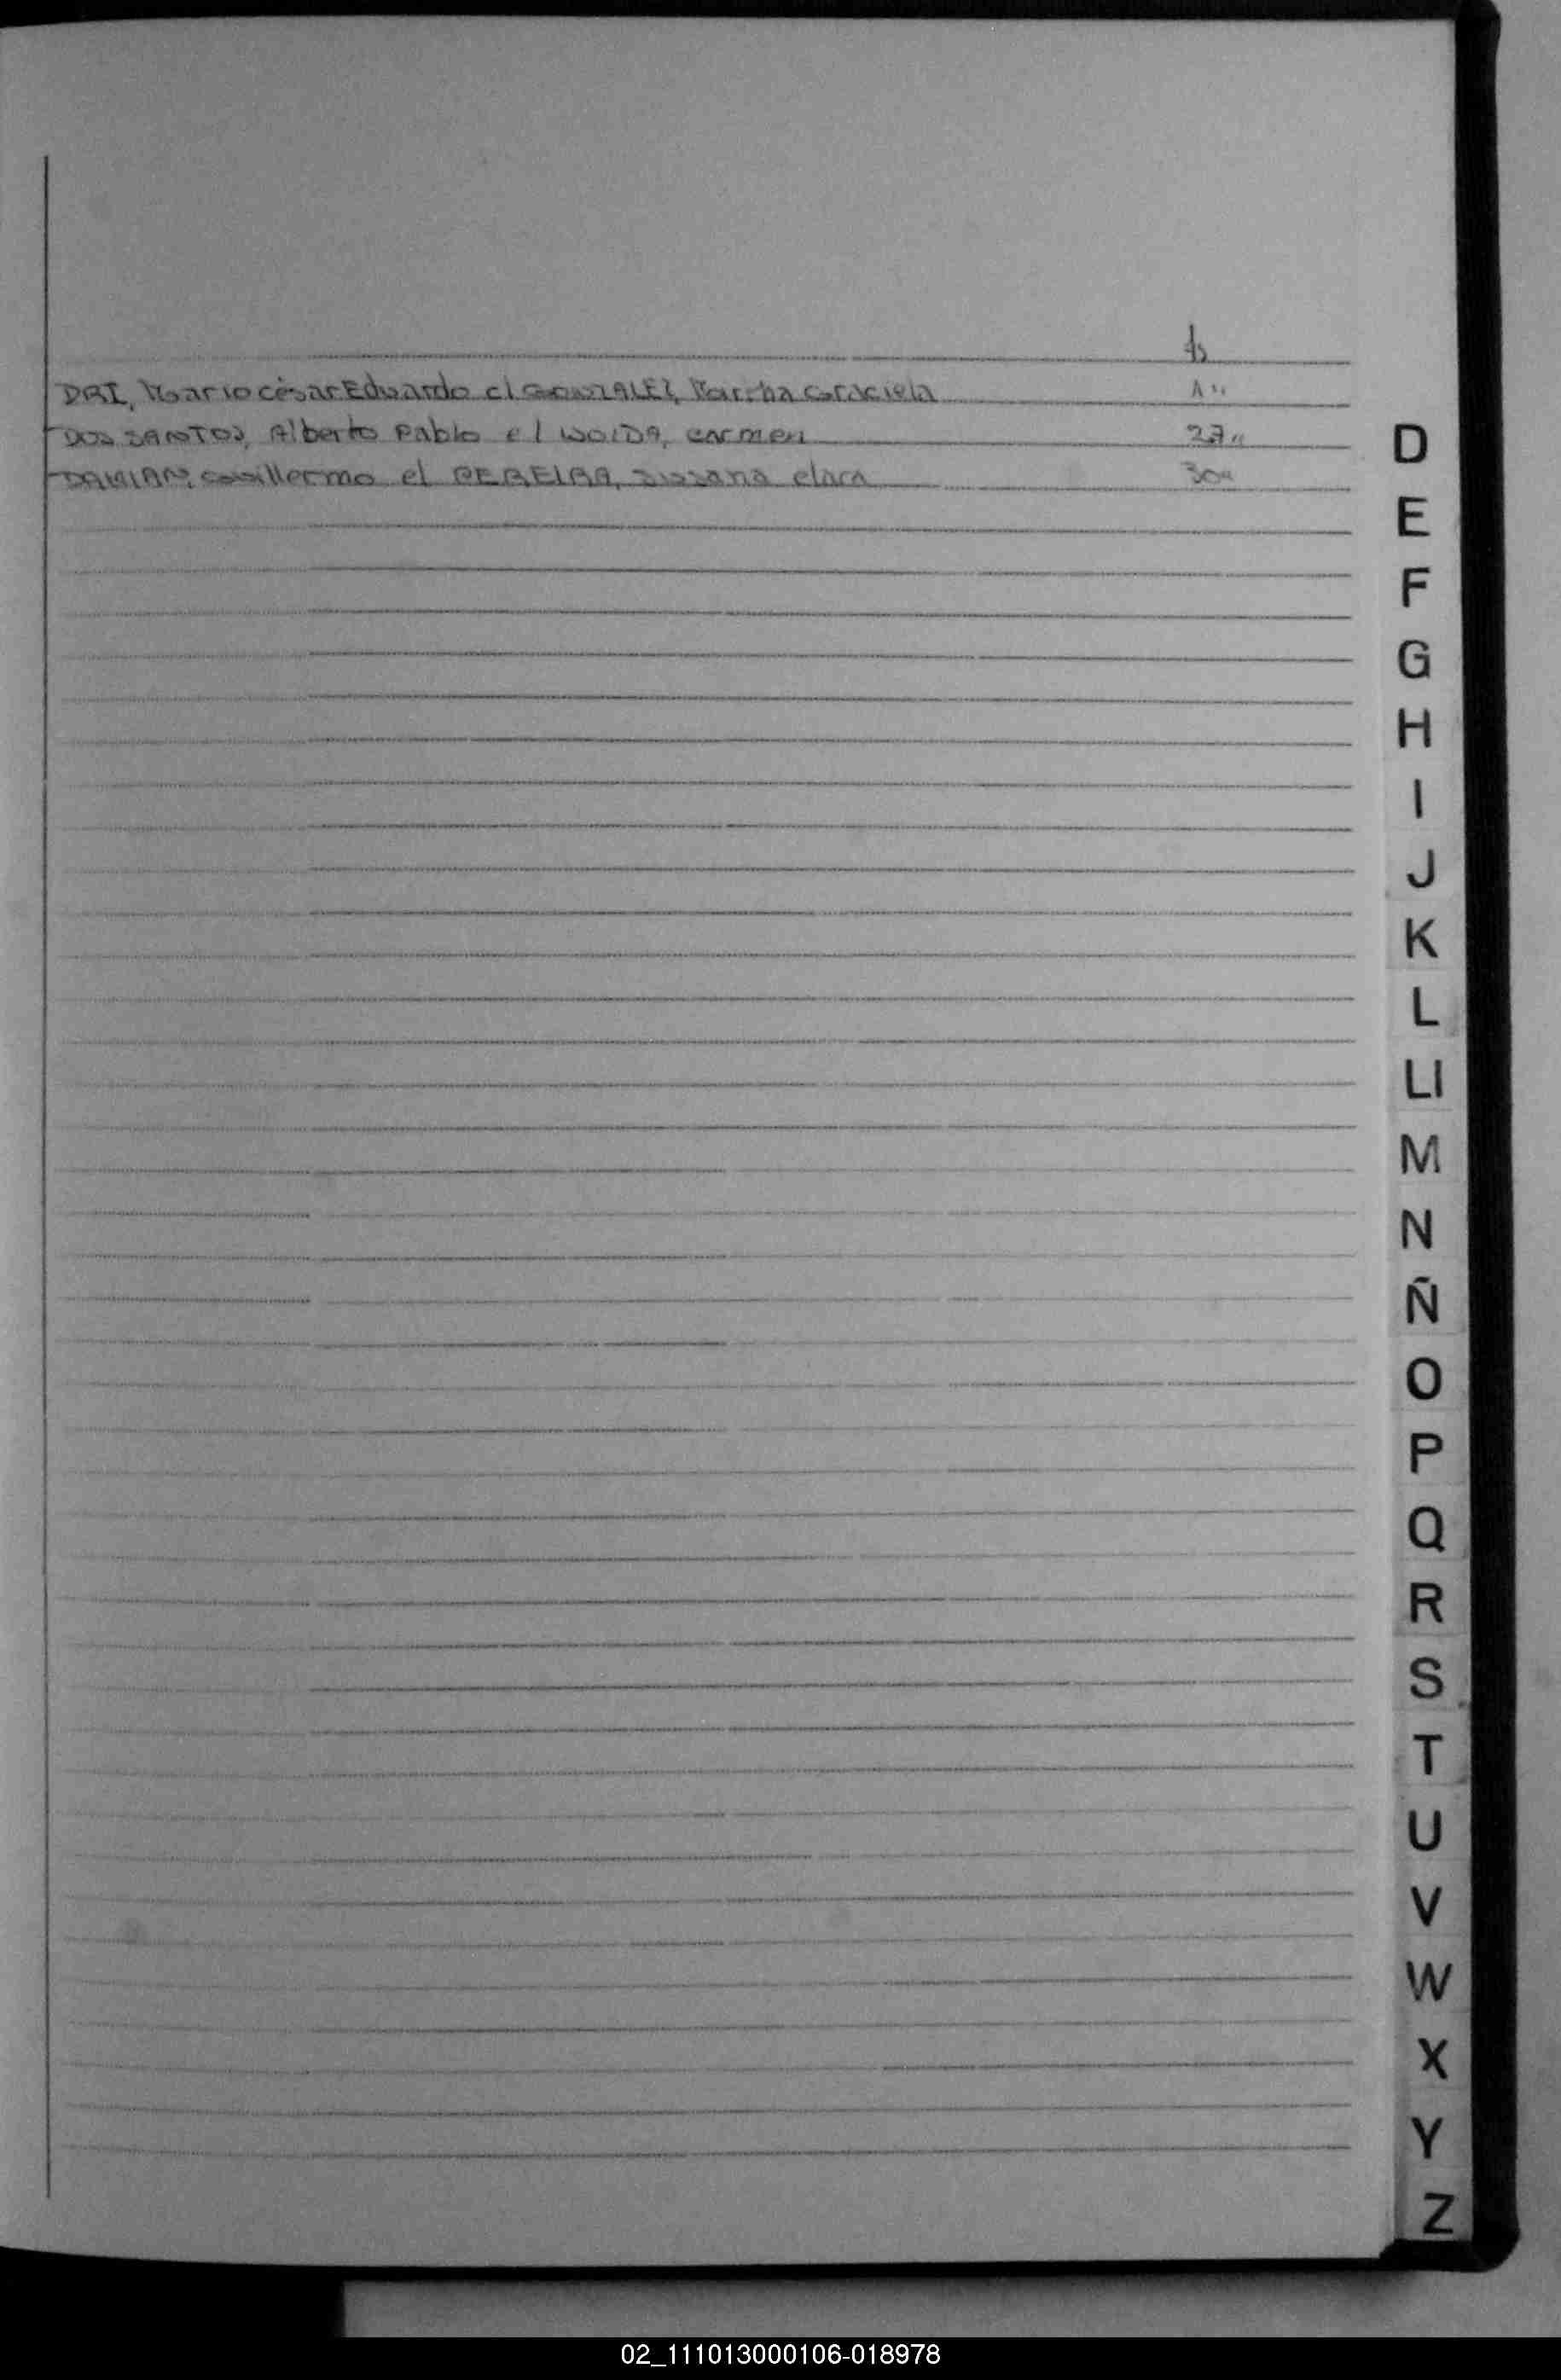 fs
DRI, Mario césar Eduardo c/ GONZALEZ, Martha Graciela 1"
DOS SANTOS, Alberto Pablo c/ WOIDA, carmen 27"
DAMIAN, Guillermo c/ PEREIRA, Susana clara 30"
D
E
F
G
H
I
J
K
L
Ll
M
N
Ñ
O
P
Q
R
S
T
U
V
W
X
Y
Z
02_111013000106-018978